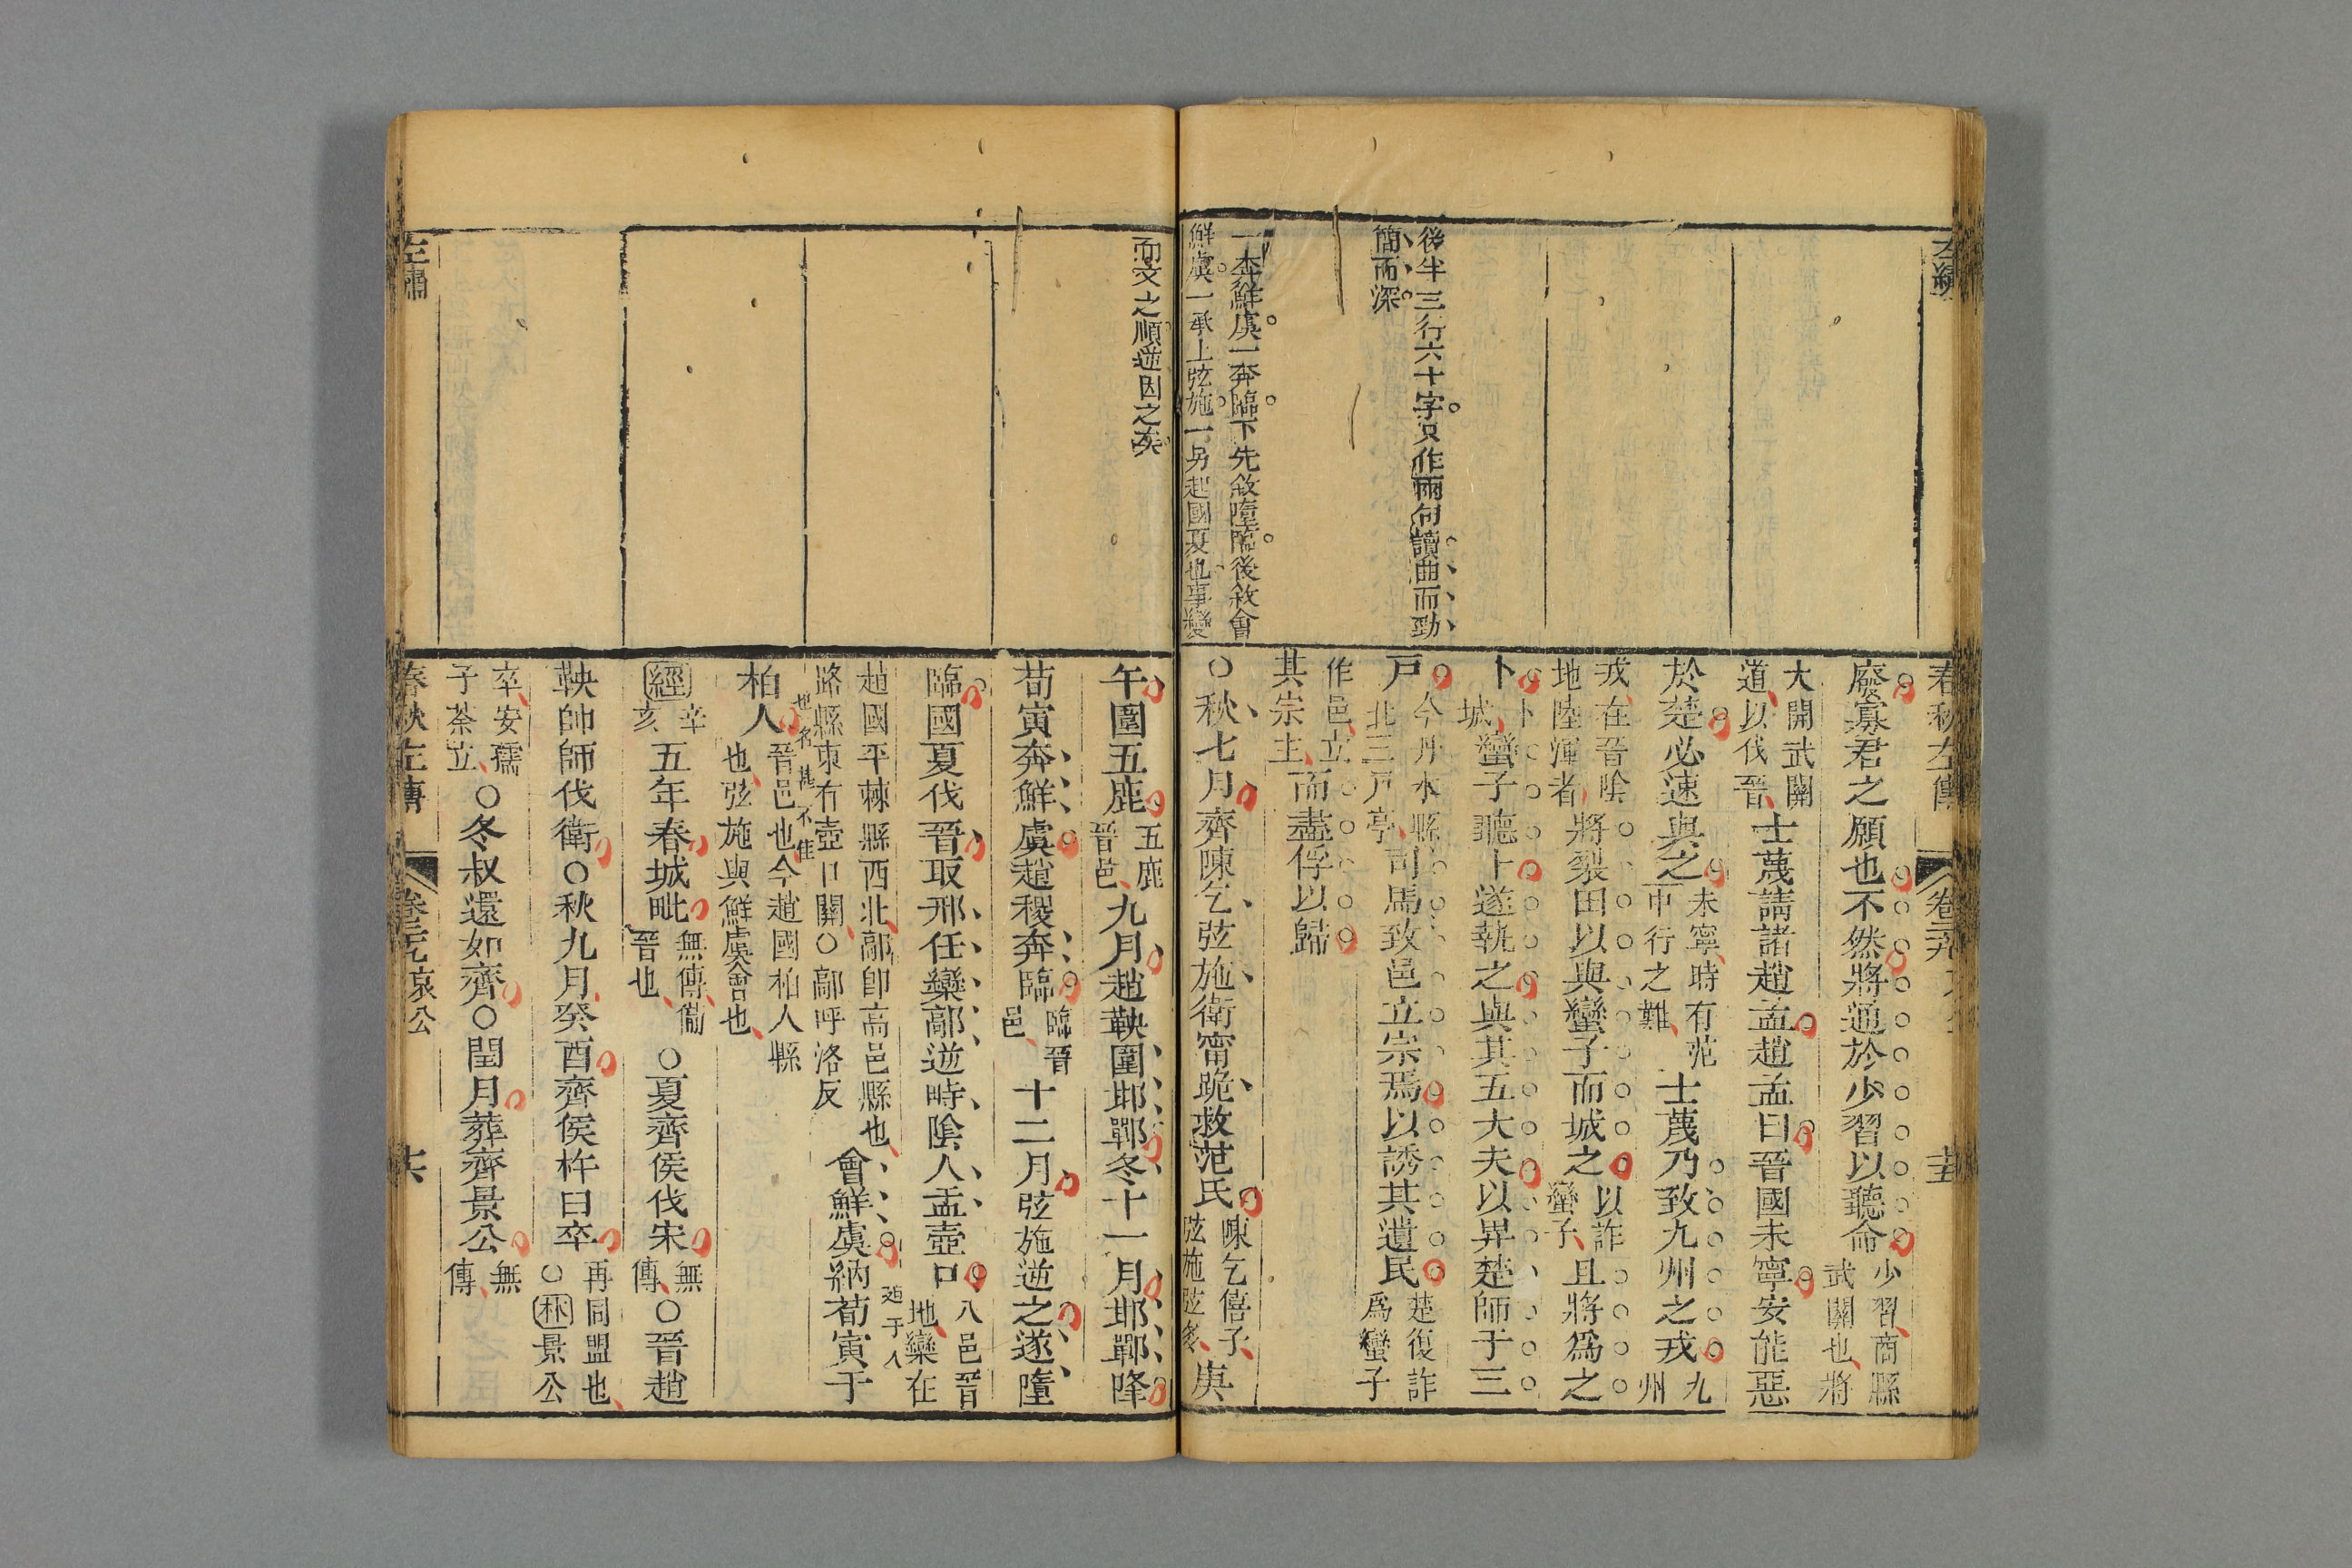 左繡
後半三行六十字只作兩句讀曲而勁
簡而深
一奔鮮虞一奔臨下先敘墮臨後敘會
鮮虞一承上弦施一另起國夏也事變
春秋左傳
卷二九
十五
廢寡君之願也不然將通於少習以聽命少習商縣武關也將
大開武關道以伐晉士蔑請諸趙孟趙孟曰晉國未寧安能惡
於楚必速與之未寧時有范中行之難士蔑乃致九州之戎九州
戎在晉陰地陸渾者將裂田以與蠻子而城之以詐蠻子且將為之
卜卜城蠻子聽卜遂執之與其五大夫以畀楚師于三
戶今丹水縣北三戶亭司馬致邑立宗焉以誘其遺民楚復詐為蠻子
作邑立其宗主而盡俘以歸
○秋七月齊陳乞弦施衛甯跪救范氏陳乞僖子弦施弦多庚
而文之順逆因之矣
午圍五鹿五鹿晉邑九月趙鞅圍邯鄲冬十一月邯鄲降
荀寅奔鮮虞趙稷奔臨臨晉邑十二月弦施逆之遂墮
臨國夏伐晉取邢任欒鄗逆畤陰人盂壺口八邑晉地欒在
趙國平棘縣西北鄗即高邑縣也路縣東有壺口關○鄗呼洛反會鮮虞納荀寅于
迺于人
柏人晉邑也今趙國柏人縣也弦施與鮮虞會也
也名甚不佳
經辛亥五年春城毗無傳備晉也○夏齊侯伐宋無傳○晉趙
鞅帥師伐衛○秋九月癸酉齊侯杵臼卒再同盟也○林景公
卒安孺子荼立○冬叔還如齊○閏月葬齊景公無傳
左繡
春秋左傳
卷二九
哀公
十六